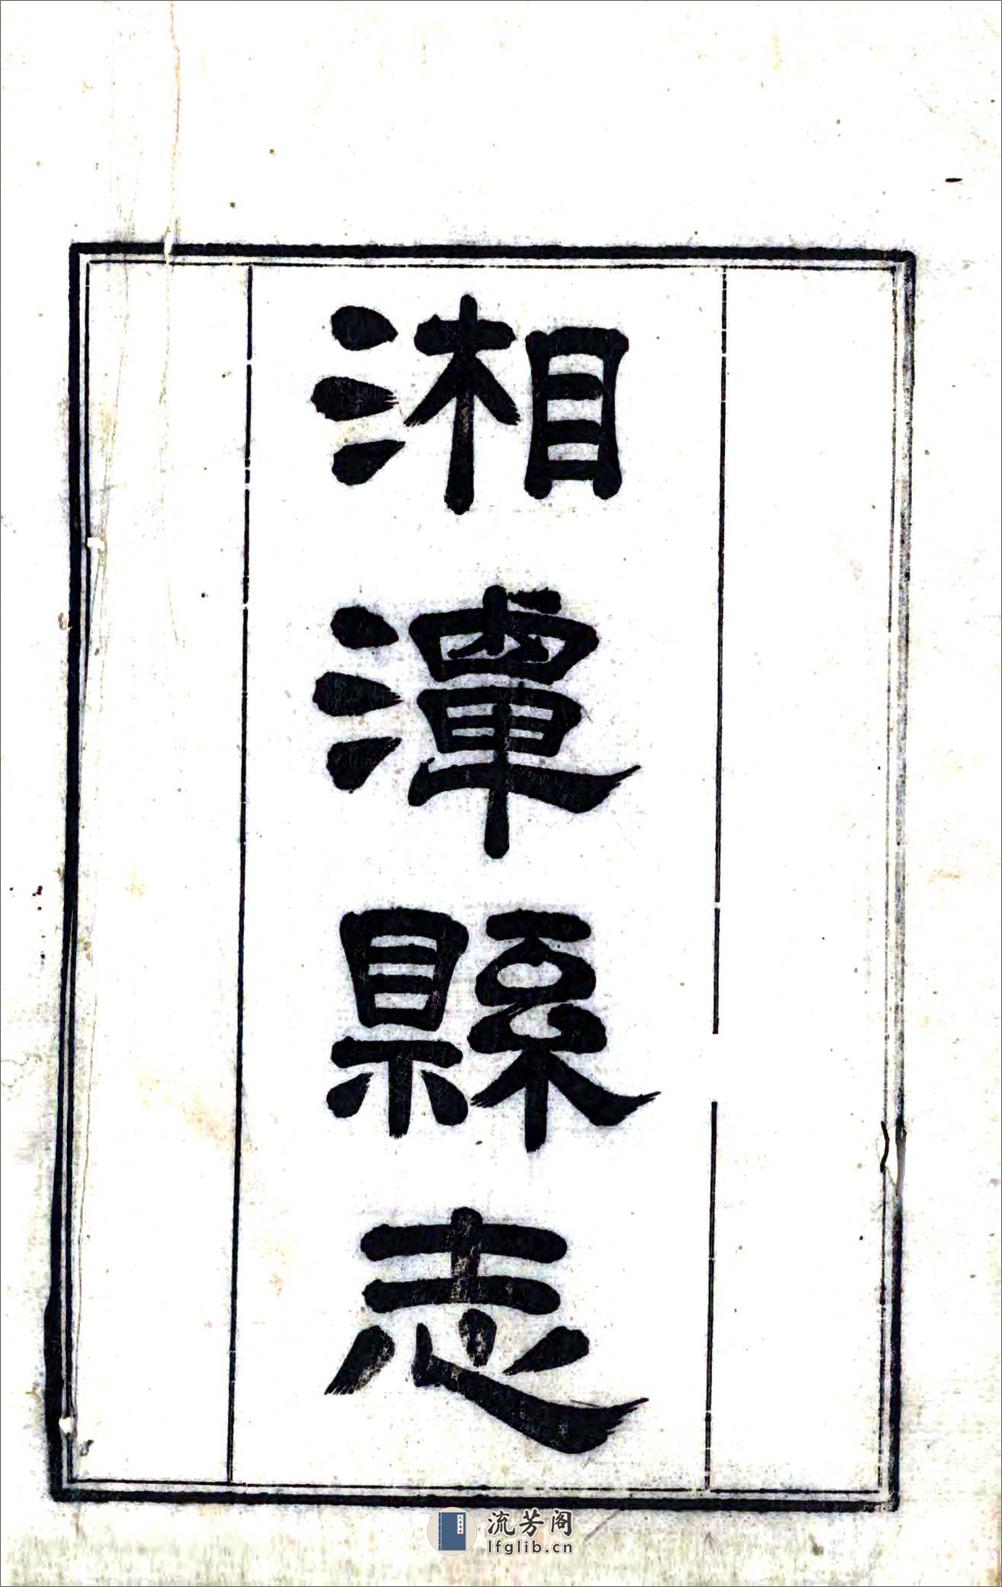 湘潭縣志
流芳阁
lfglib.cn